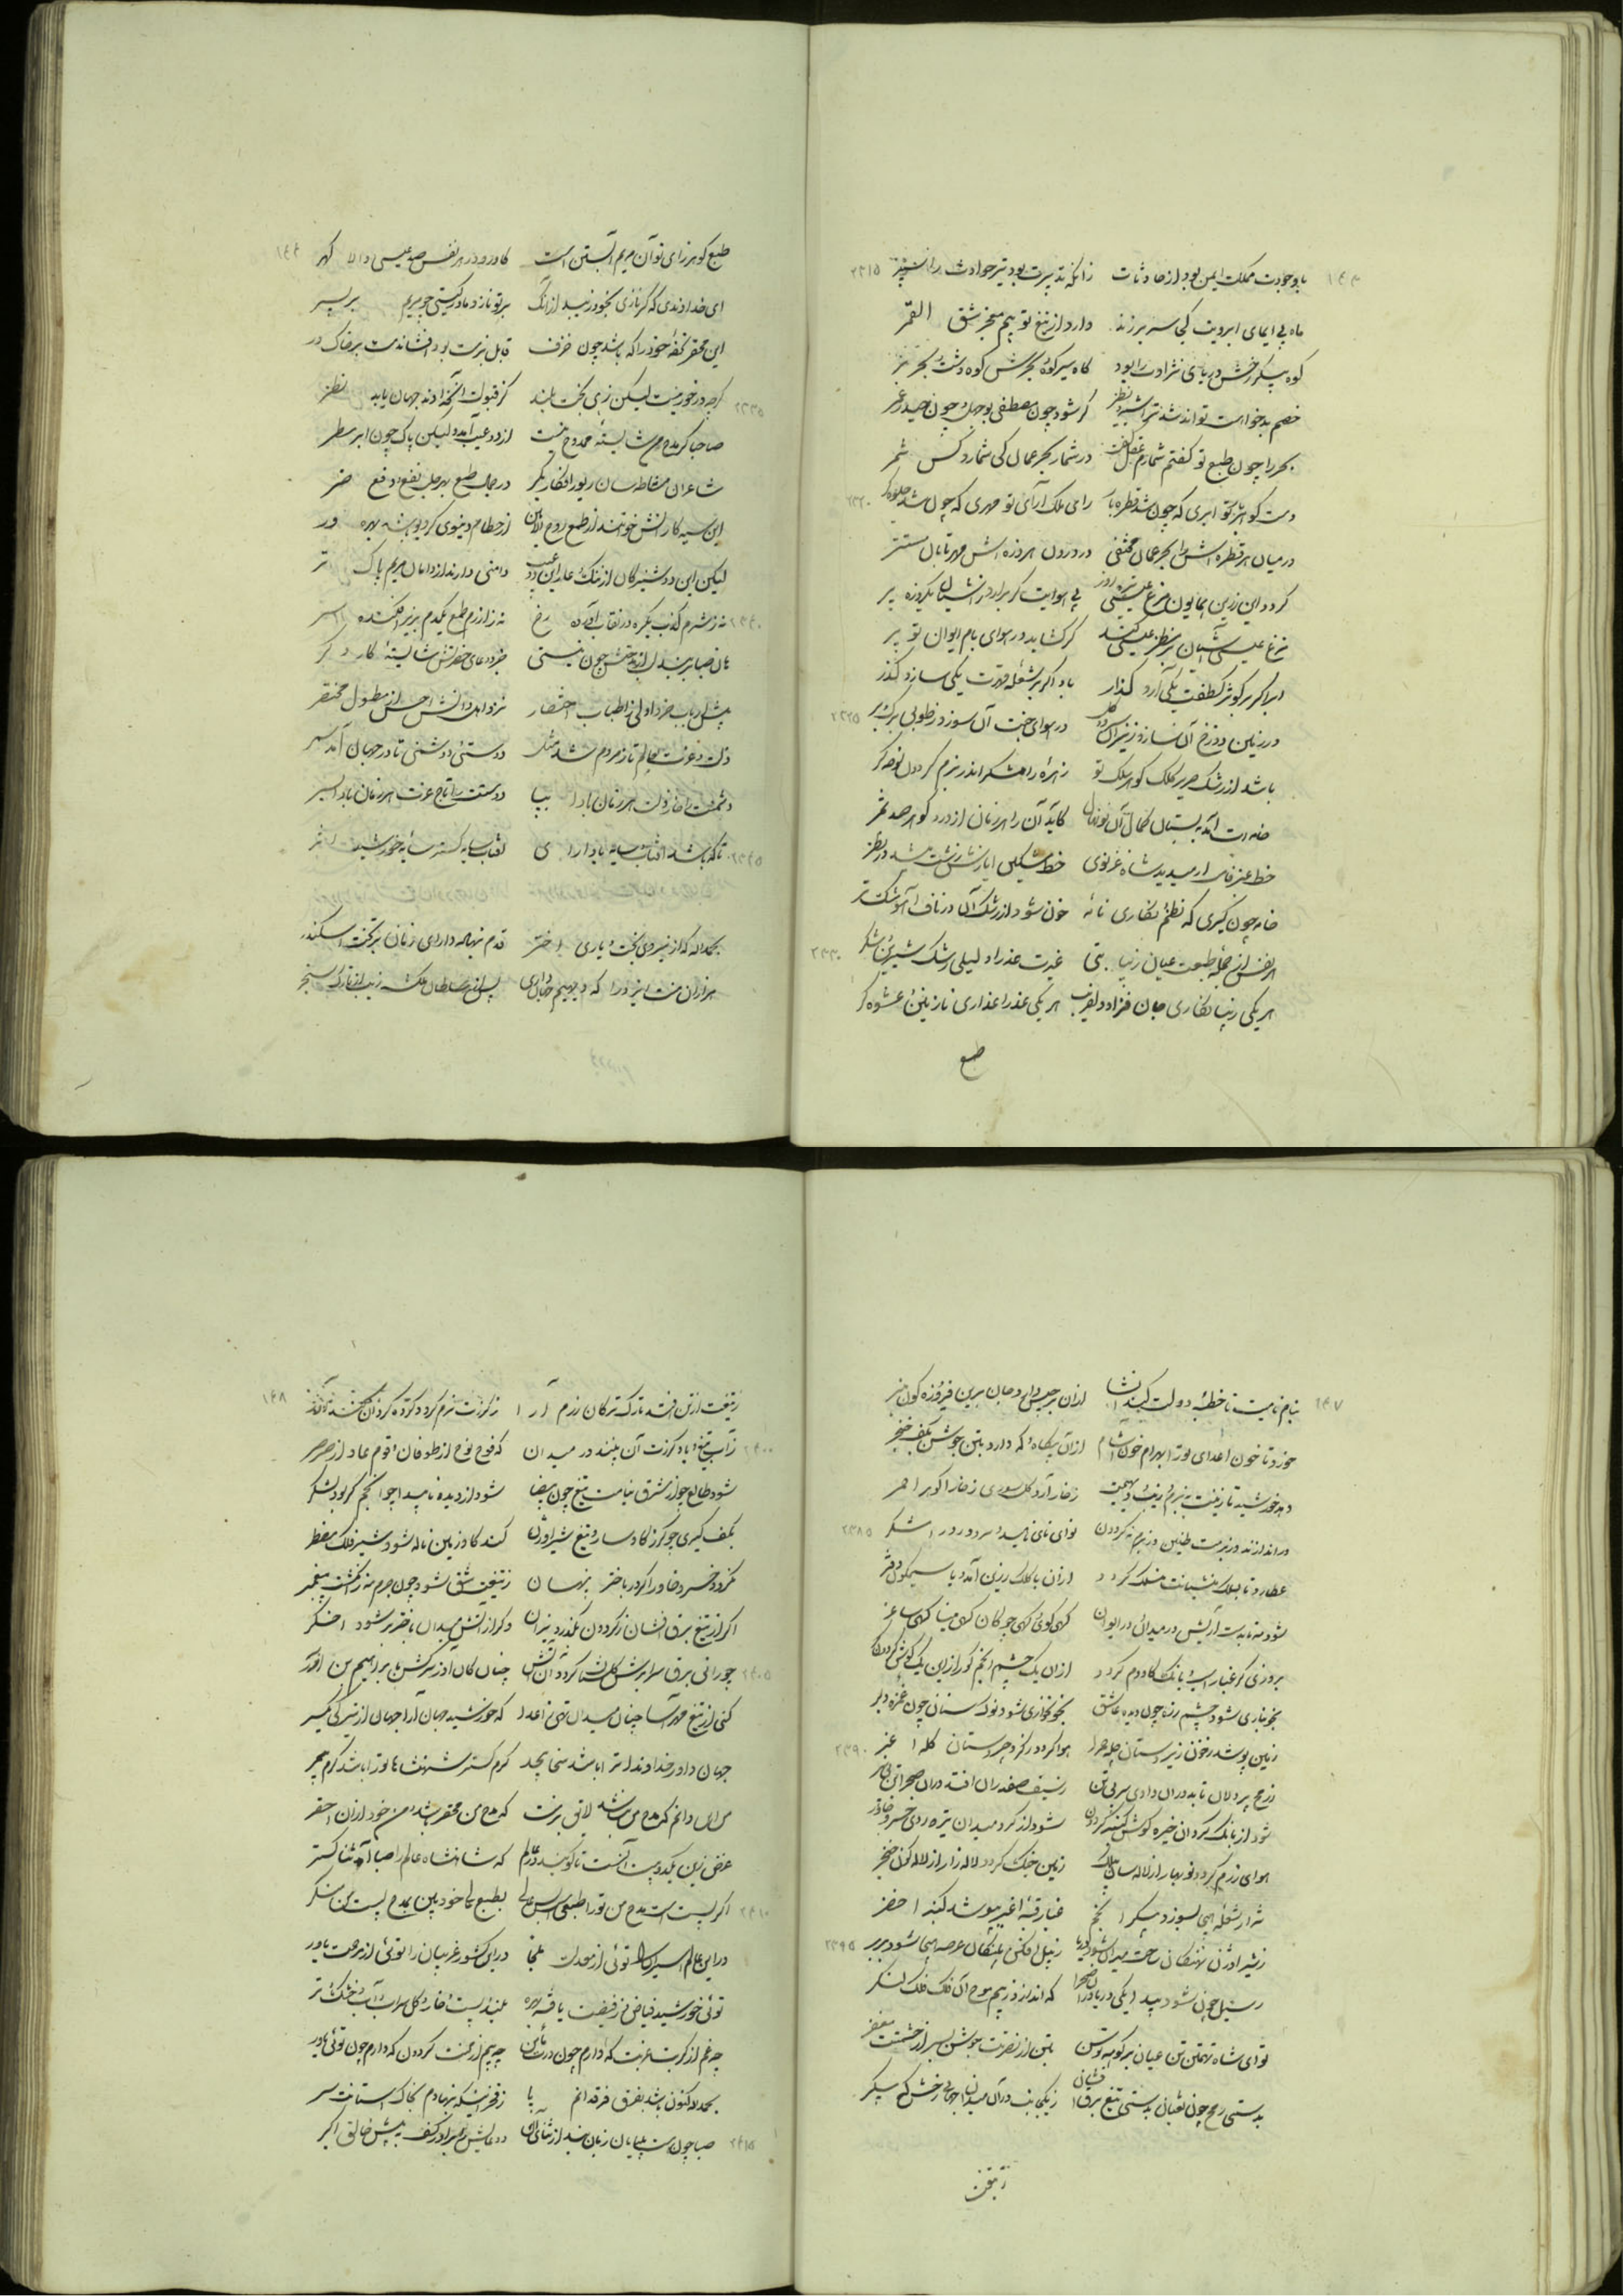 با وجودت مملکت ایمن بود از حادثات زانکه تدبیرت بود تیر حوادث را سپر
ماه بی ایمای ابرویت کجا سر برزند دارد از تیغ تو بیم معجز شق القمر
کوه پیکر رخش دریای نژادت را بود گاه سیر کوه و بحرش کوه دشت و بحر بر
خصم بدخواهت تواند شد گر شود چون مصطفی بوجهل و چون حیدر عمر
بحر را چون طبع تو گفتم شمارم عقل گفت در شمار بحر عمان کی شمارد کس شمر
دست گوهربار تو ابری که چون شد قطره بار رای ملک آرای تو مهری که چون شد جلوه گر
در میان هر قطره اش را بحر عمان مختفی در درون هر ذره اش مهر تابان مستتر
گردد این زرین همایون مرغ پی هوایت گر برآرد ز آشیان یکروزه پر
مرغ عیسی آشیان گر گشاید در هوای بام ایوان تو پر
ابر اگر بر کوثر لطفت یکی آرد گذار باد اگر بر شعله قهرت یکی سازد گذر
در زمین دوزخ آن سازد در هوای جنت آن سوزد ز طوبی برگ و بر
باشد از رشک صریر کلک گوهر سلک تو زهره رامشگر اندر بزم گردون نوحه گر
خامه ات آمد به بستان کمال آن نونهال کاید آن را هر زمان از در و گوهر صد ثمر
خط عنبرفام ار میدید شاه غزنوی خط مشکین ایازش زشت میشد در نظر
خامه چون گیری که نظم نگاری نامه خون شود از رشک آن در ناف آهو مشک تر
هر نفس از حجله طبعت عیان زیبا بتی غیرت عذرا و لیلی رشک شیرین و شکر
هر یکی زیبا نگاری جان فزا و دلفریب هر یکی عذرا عذاری نازنین و عشوه گر
طبع
طبع گوهرزای تو آن مریم آبستن است کاورد در هر نفس صد عیسی والا گهر
ای خداوندی که گر نازی بخود زیبد از آنک بر تو نازد مادر گیتی چو مریم بر پسر
این محقر تحفه خود را که باشد چون خزف قابل بزمت بود افشاندمت بر خاک در
گرچه درخور نیست لیکن زهی بخت بلند گر قبولت افتد جهان یابد نظر
صاحبا گر مدح من شایسته ممدوح نیست از دو عیب آمد ولیکن پاک چون ابر مطر
شاعران مشاطه سان زیور افکار بکر در جهان طمع بهر جلب نفع و دفع ضر
این سیه کار از حطام دنیوی گردیده شه بهره ور
لیکن این دوشیزگان از ننگ عار این دو عیب دامنی دارند از دامان مریم پاک تر
نه ز شرم کذب یکره در نقاب آورده رخ نه ز آزرم طمع یکدم بزیر افکنده سر
هان صبا بربند لب از مدحتش چون نیستی جز دعای حضرتش شایسته کار دگر
پیش ارباب خرد اولی ز اطناب اختصار نزد اهل دانش احسن از مطول مختصر
ذلت و عزت بعالم تا ز مردم شد مثل دوستی و دشمنی تا در جهان آمد سمر
دشمنت را خار ذلت هر زمان بادا بپا دوستت را تاج عزت هر زمان بادا بسر
تا که باشد آفتاب سایه بادا رای آفتاب سایه گستر سایه خورشید فر
بحمدالله که از نیروی بخت و یاری اختر قدم نهاد دارای زمان بر تخت اسکندر
هزاران منت ایزد را که دیهیم جهانداری پس از سلطان ملک زیب از تارک سنجر
بنام نامیت تا خطبه دولت کند انشا از آن برجیس دارد جا برین فیروزه گون منبر
خورد تا خون اعدای تو را بهرام خون آشام از آن پیگاه و گه دارد بتن جوشن بکف خنجر
دهد خورشید تا زینت به بزم و زیب دیهیمت ز خار آرد گل سوری ز خار گوهر احمر
دراندازند در بزمت طنین در بزم نه گردون نوای نای ناهید و سرود رود رامشگر
عطارد تا بسلک منشیانت منسلک گردد از آن با کلک زرین آمد و با سیمگون دفتر
شود مه تا بدستت آیتش در میدان و در ایوان گهی گوی و گهی چوگان گهی مینا گهی ساغر
بروزی کز غبار اسب و بانگ گاودم گردد از آن یک چشم انجم کور از این یک گوش گردون کر
بخونباری شود چشم زره چون دیده عاشق بخونخواری شود نوک سنان چون غمزه دلبر
زمین پوشد ز خون زیر دستان حله حمرا هوا گردد ز گرد چیره دستان کله اغبر
ز رمح پردلان تا بد در آن وادی سر بی تن ز سیف صفدران افتد در آن صحرا تن بی سر
شود از بانگ گردان خیره گوش گنبد گردون شود از گرد میدان تیره روی خسرو خاور
هوای رزم گردد نوبهار از لاله سان بیرق زمین جنگ گردد لاله زار از لاله گون خنجر
شرار شعله هیجا بسوزد پیکر انجم غبار قبه اغبر بپوشد گنبد اخضر
ز شیر اوژن نهنگان ساحت میدان شود دریا ز پیل افکن پلنگان عرصه هیجا شود بربر
ز سیل خون شود پیدا یکی دریا در آن صحرا که اندازد ز بیم موج آن فلک فلک لنگر
تو ای شاه تهمتن تن عیان بر کوهه توسن بتن از نصرتت جوشن بسر از حشمتت مغفر
بدستی رمح چون ثعبان بدستی تیغ برق افشان ز یکجانب در آن میدان جهانی رخش که پیکر
ز تیغت
ز تیغت از تن افتد تارک ترکان رزم آرا ز گرزت نرم گردد گرده گردان کند آور
ز آب تیغ و باد گرزت آن بینند در میدان که قوم نوح از طوفان و قوم عاد از صرصر
شود طالع چو از مشرق نیامت تیغ چون بیضا شود از دیده ناپیدا چو انجم گر بود لشکر
بکف گیری چو گرز گاوسار و تیغ شیر اوژن کند گاو زمین ناله شود شیر فلک مضطر
نگردد خسرو خاور اگر در باختر پنهان ز تیغت شق شود چون جرم مه ز انگشت پیغمبر
اگر از تیغ برق افشان ز گردون بگذرد نیران وگر از آتش میدان ناخنبر شود اخگر
چو رانی برق سان ابرش گلستان گردد آن آتش چنان کان آذر سرکش بابراهیم بن آذر
کنی از تیغ مهرآسا چنان میدان تهی ز اعدا که خورشید جهان آرا جهان از تیرگی یکسر
جهان داور خداوندا ترا باشد سخا بیحد کرم گستر شهنشاها تو را باشد کرم بیمر
من این دانم که مدح من نباشد لایق بزمت که مدح من محقر باشد و من خود از آن احقر
غرض زین یکدو بیت آنست تا گویند در عالم که شاهنشاه عالم را صبا آمد ثناگستر
اگر پست است مدح من تو را طبعیست بس عالی بطبع عالی خود بین بمدح پست من منگر
در این عالم اسیران را توئی از معدلت ملجا در این کشور غریبان را توئی از مرحمت یاور
توئی خورشید فیاض و ز فیضت یافته بهره بلند و پست و خار و گل سراب و آب و خشک و تر
چه غم از کربت غربت که دارم چون درت مأمن چه بیم از محنت گردون که دارم چون توئی داور
بحمدالله کنون باشد بفرق فرقدانم پا ز فخر اینکه بنهادم بخاک آستانت سر
صبا چون نیست پایان زبان بند از ثنای او دعایش را برآور کف به پیش خالق اکبر